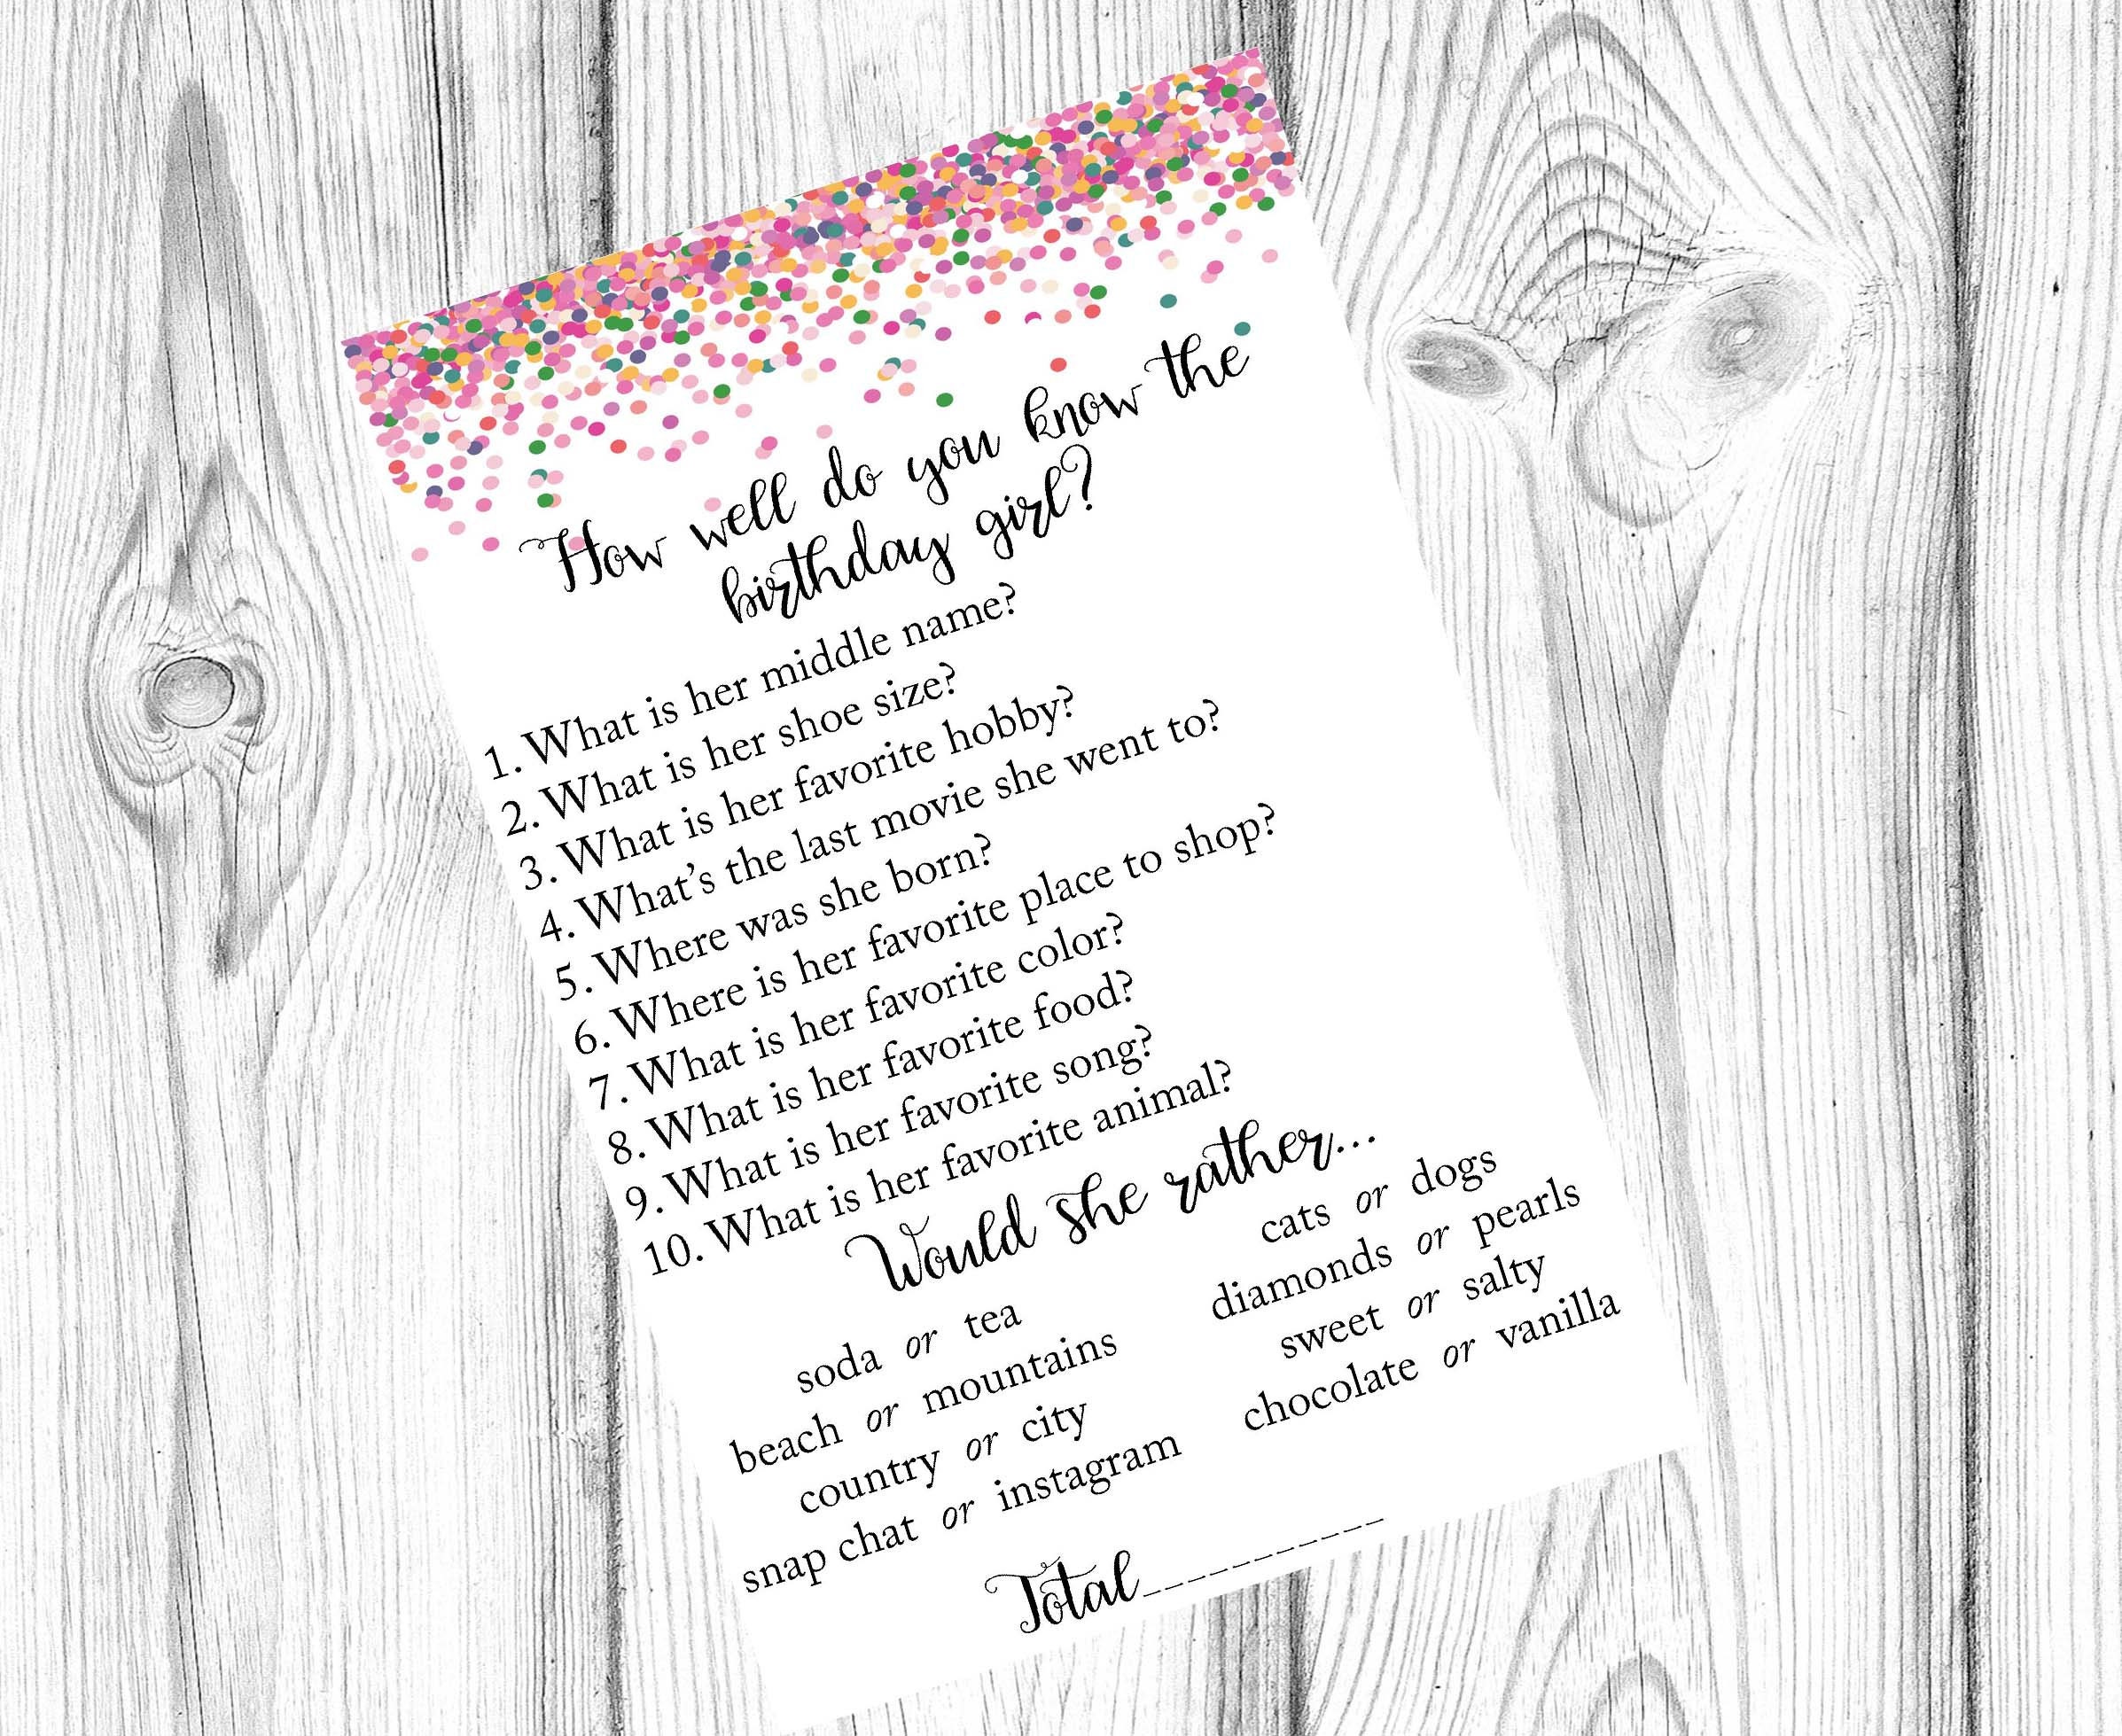 How well do you know the
birthday girl?
1. What is her middle name?
2. What is her shoe size?
3. What is her favorite hobby?
4. What's the last movie she went to?
5. Where was she born?
6. Where is her favorite place to shop?
7. What is her favorite color?
8. What is her favorite food?
9. What is her favorite song?
10. What is her favorite animal?
Would she rather...
soda or tea
beach or mountains
country or city
snap chat or instagram
cats or dogs
diamonds or pearls
sweet or salty
chocolate or vanilla
Total__________